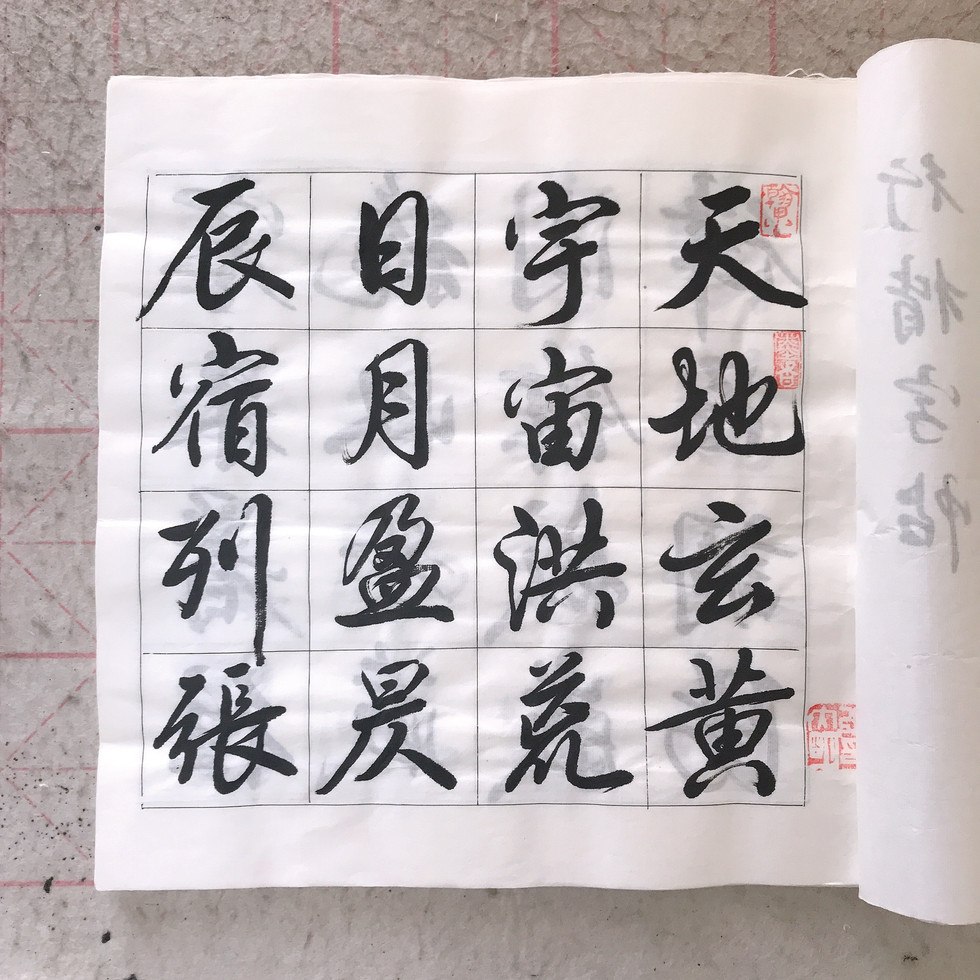 行楷字帖
天地玄黄
宇宙洪荒
日月盈昃
辰宿列張